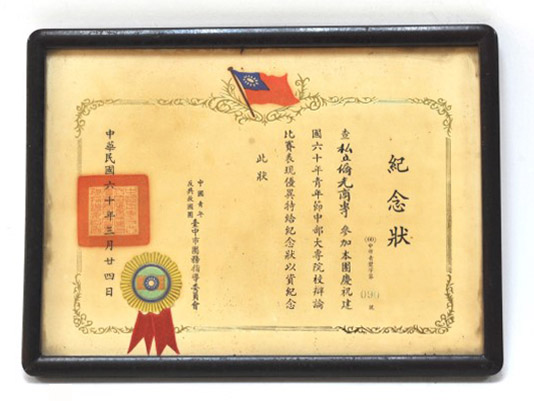 紀念狀
查私立僑光商專參加本團慶祝建
國六十年青年節中部大專院校辯論
比賽表現優異特給紀念狀以資紀念
此狀
中國青年反共救國團臺中市團務指導委員會
中華民國六十年三月廿四日